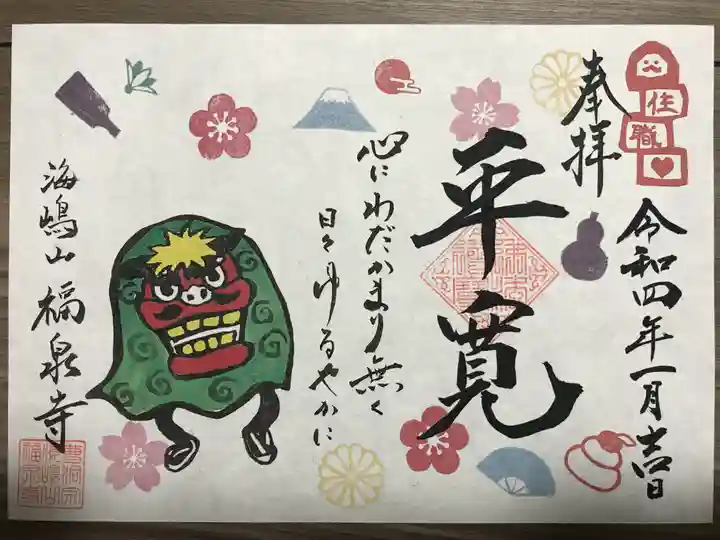 住職
奉拝
令和四年一月吉日
平寛
心にわだかまり無く
日々ゆるやかに
海嶋山 福泉寺
曹洞宗
海嶋山
福泉寺